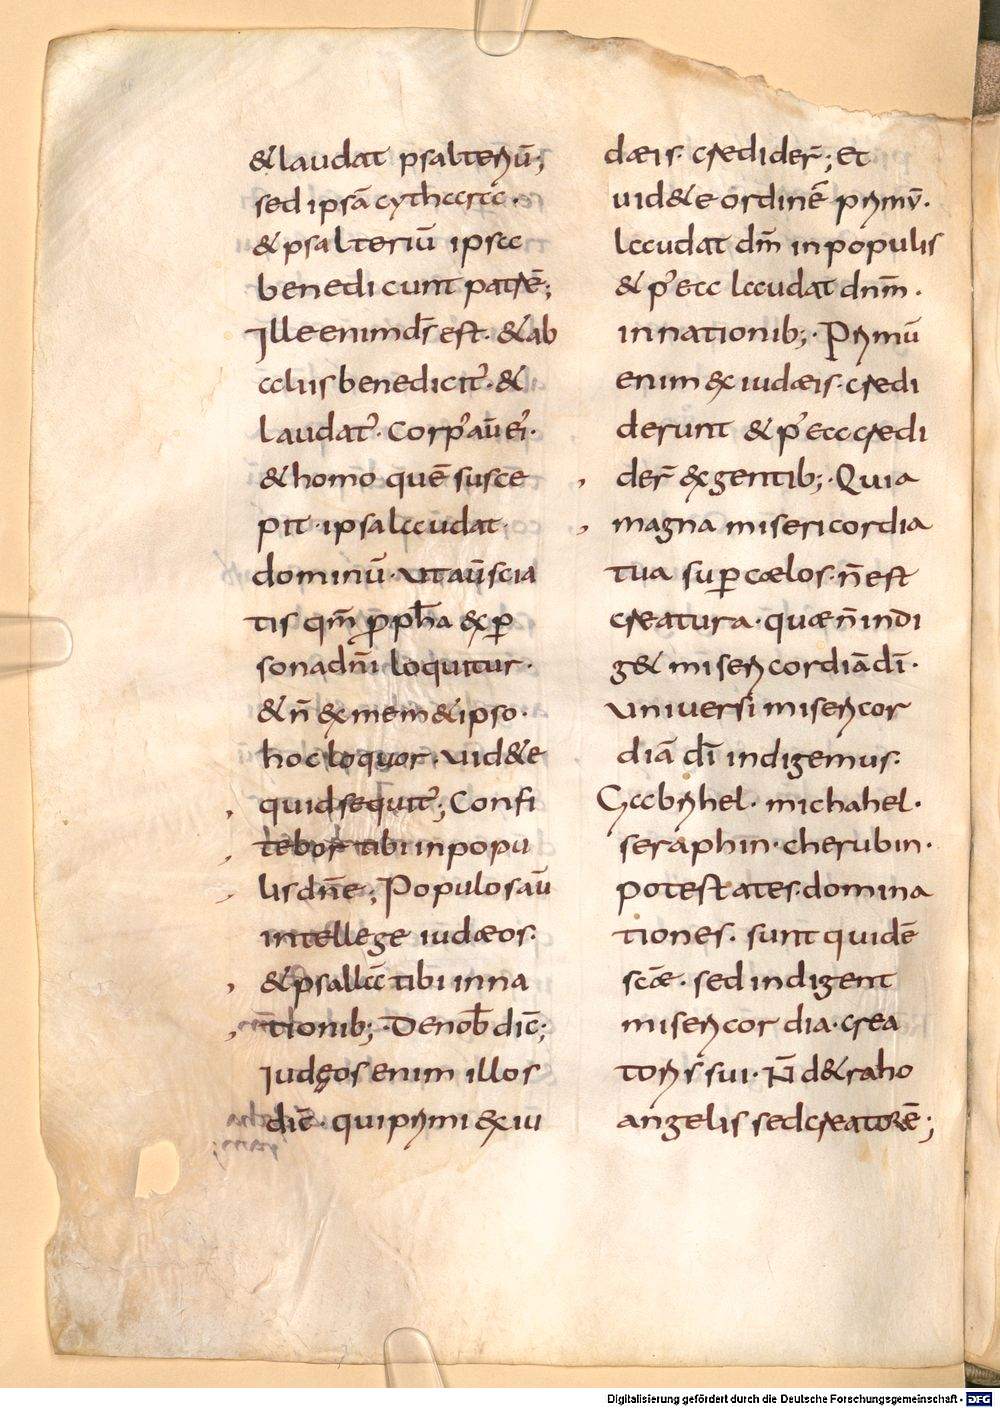 &laudat psalteriū;
sed ipsā cythara.
&psalteriū ipsa
benedicunt patrē;
Ille enim d̄s est. &ab
aliis benedicit᷑. &
laudat᷑. Corp᷑ aū ei᷑.
&homo quē susce
pit. ipsa laudat.
dominū. Ut aū scia
tis qm̄ ꝓph̄a exꝑ
sona dn̄i loquitur.
&n̄ ex mem&ipso.
hoc loquor. Uid&e
quid sequit᷑; Confi
tebor tibi in popu
lis dn̄e; Populos aū
intellege iudæos.
&psallā tibi in na
tionib; De nob̄ dic̄;
Iudęos enim illos
dic̄. qui primi ex iu
dæis. credider̄; et
uid&e ordinē primū.
laudat dm̄ in populis
&p᷑ ea laudat dnm̄.
in nationib;. Primū
enim ex iudæis. credi
derunt &p᷑ ea credi
der̄ ex gentib;. Quia
magna misericordia
tua suꝑ cælos. n̄ est
creatura. quæ n̄ indi
g& misericordiā dī.
Universi misericor
diā dī indigemus.
Gabrihel. michahel.
seraphin. cherubin.
potestates. domina
tiones. sunt quidē
scǣ. sed indigent
misericordia. crea
toris sui. N̄ d&raho
angelis sed creatorē;
Digitalisierung gefördert durch die Deutsche Forschungsgemeinschaft - DFG